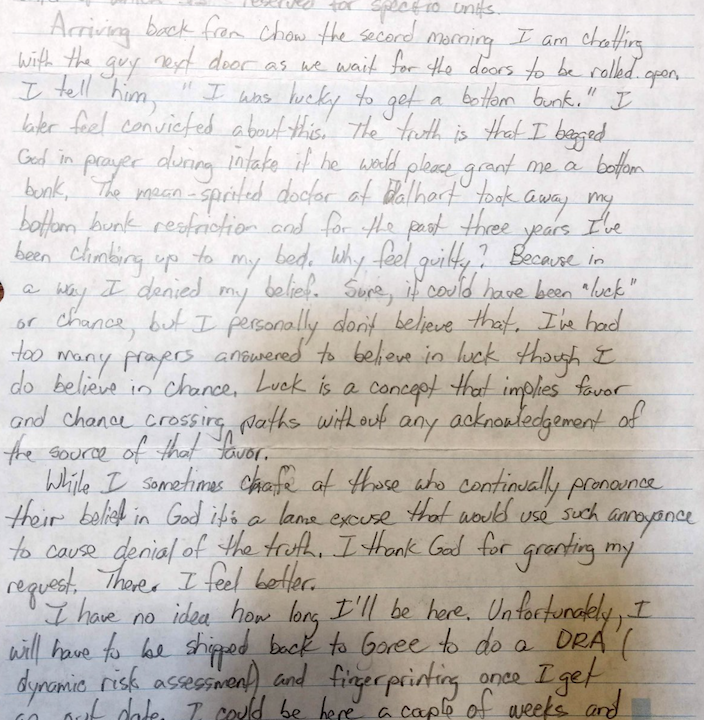 reserved for specific units.
Arriving back from chow the second morning I am chatting
with the guy next door as we wait for the doors to be rolled open.
I tell him, "I was lucky to get a bottom bunk." I
later feel convicted about this. The truth is that I begged
God in prayer during intake if he would please grant me a bottom
bunk. The mean-spirited doctor at Dalhart took away my
bottom bunk restriction and for the past three years I've
been climbing up to my bed. Why feel guilty? Because in
a way I denied my belief. Sure, it could have been "luck"
or chance, but I personally don't believe that. I've had
too many prayers answered to believe in luck though I
do believe in chance. Luck is a concept that implies favor
and chance crossing paths without any acknowledgement of
the source of that favor.
While I sometimes chafe at those who continually pronounce
their belief in God it's a lame excuse that would use such annoyance
to cause denial of the truth. I thank God for granting my
request. There. I feel better.
I have no idea how long I'll be here. Unfortunately, I
will have to be shipped back to Goree to do a DRA (
dynamic risk assessment) and fingerprinting once I get
an out date. I could be here a couple of weeks and